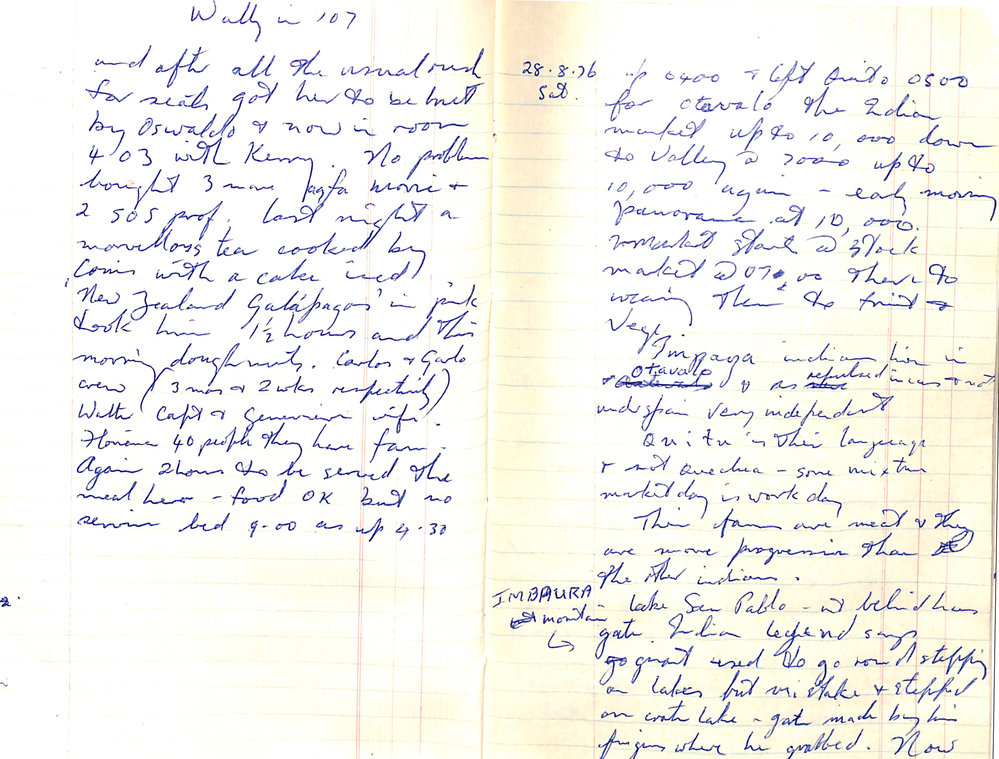 Wally in 107
and after all the usual rush
for seats got here to be met
by Oswaldo & now in room
403 with Kerry. No problem
bought 3 more Agfa movie +
2 505 prof. Last night a
marvellous tea cooked by
with a cake iced
'New Zealand Galápagos' in pink
took him 1½ hours and this
morning doughnuts. Carlos & Carlo
crew (3 mos & 2 wks respectively)
Walter Capt & Genevieve wife.
40 people they have
Again 2 hours to be served the
meal here - food OK but no
service bed 9.00 as up 4.30
28.8.76
Sat.
up 0400 & left Quito 0500
for Otavalo the Indian
market up to 10,000 down
to Valley @ 7000 up to
10,000 again - early morning
panorama at 10,000.
market starts @ stock
market @ 07 00 then to
weaving then to fruit &
Vege
indians live in
Otavalo
& as repulsed incas & not
very independent
Quitu is their language
& not Quechua - some mixture
market day is work day
Their farms are neat & they
are more progressive than
the other indians.
IMBAURA
mountain
Lake San Pablo - behind has
gate. Indian legend says
giant used to go round stepping
on lakes but mistake & stepped
on crater lake - gate made by his
fingers where he grabbed. Now